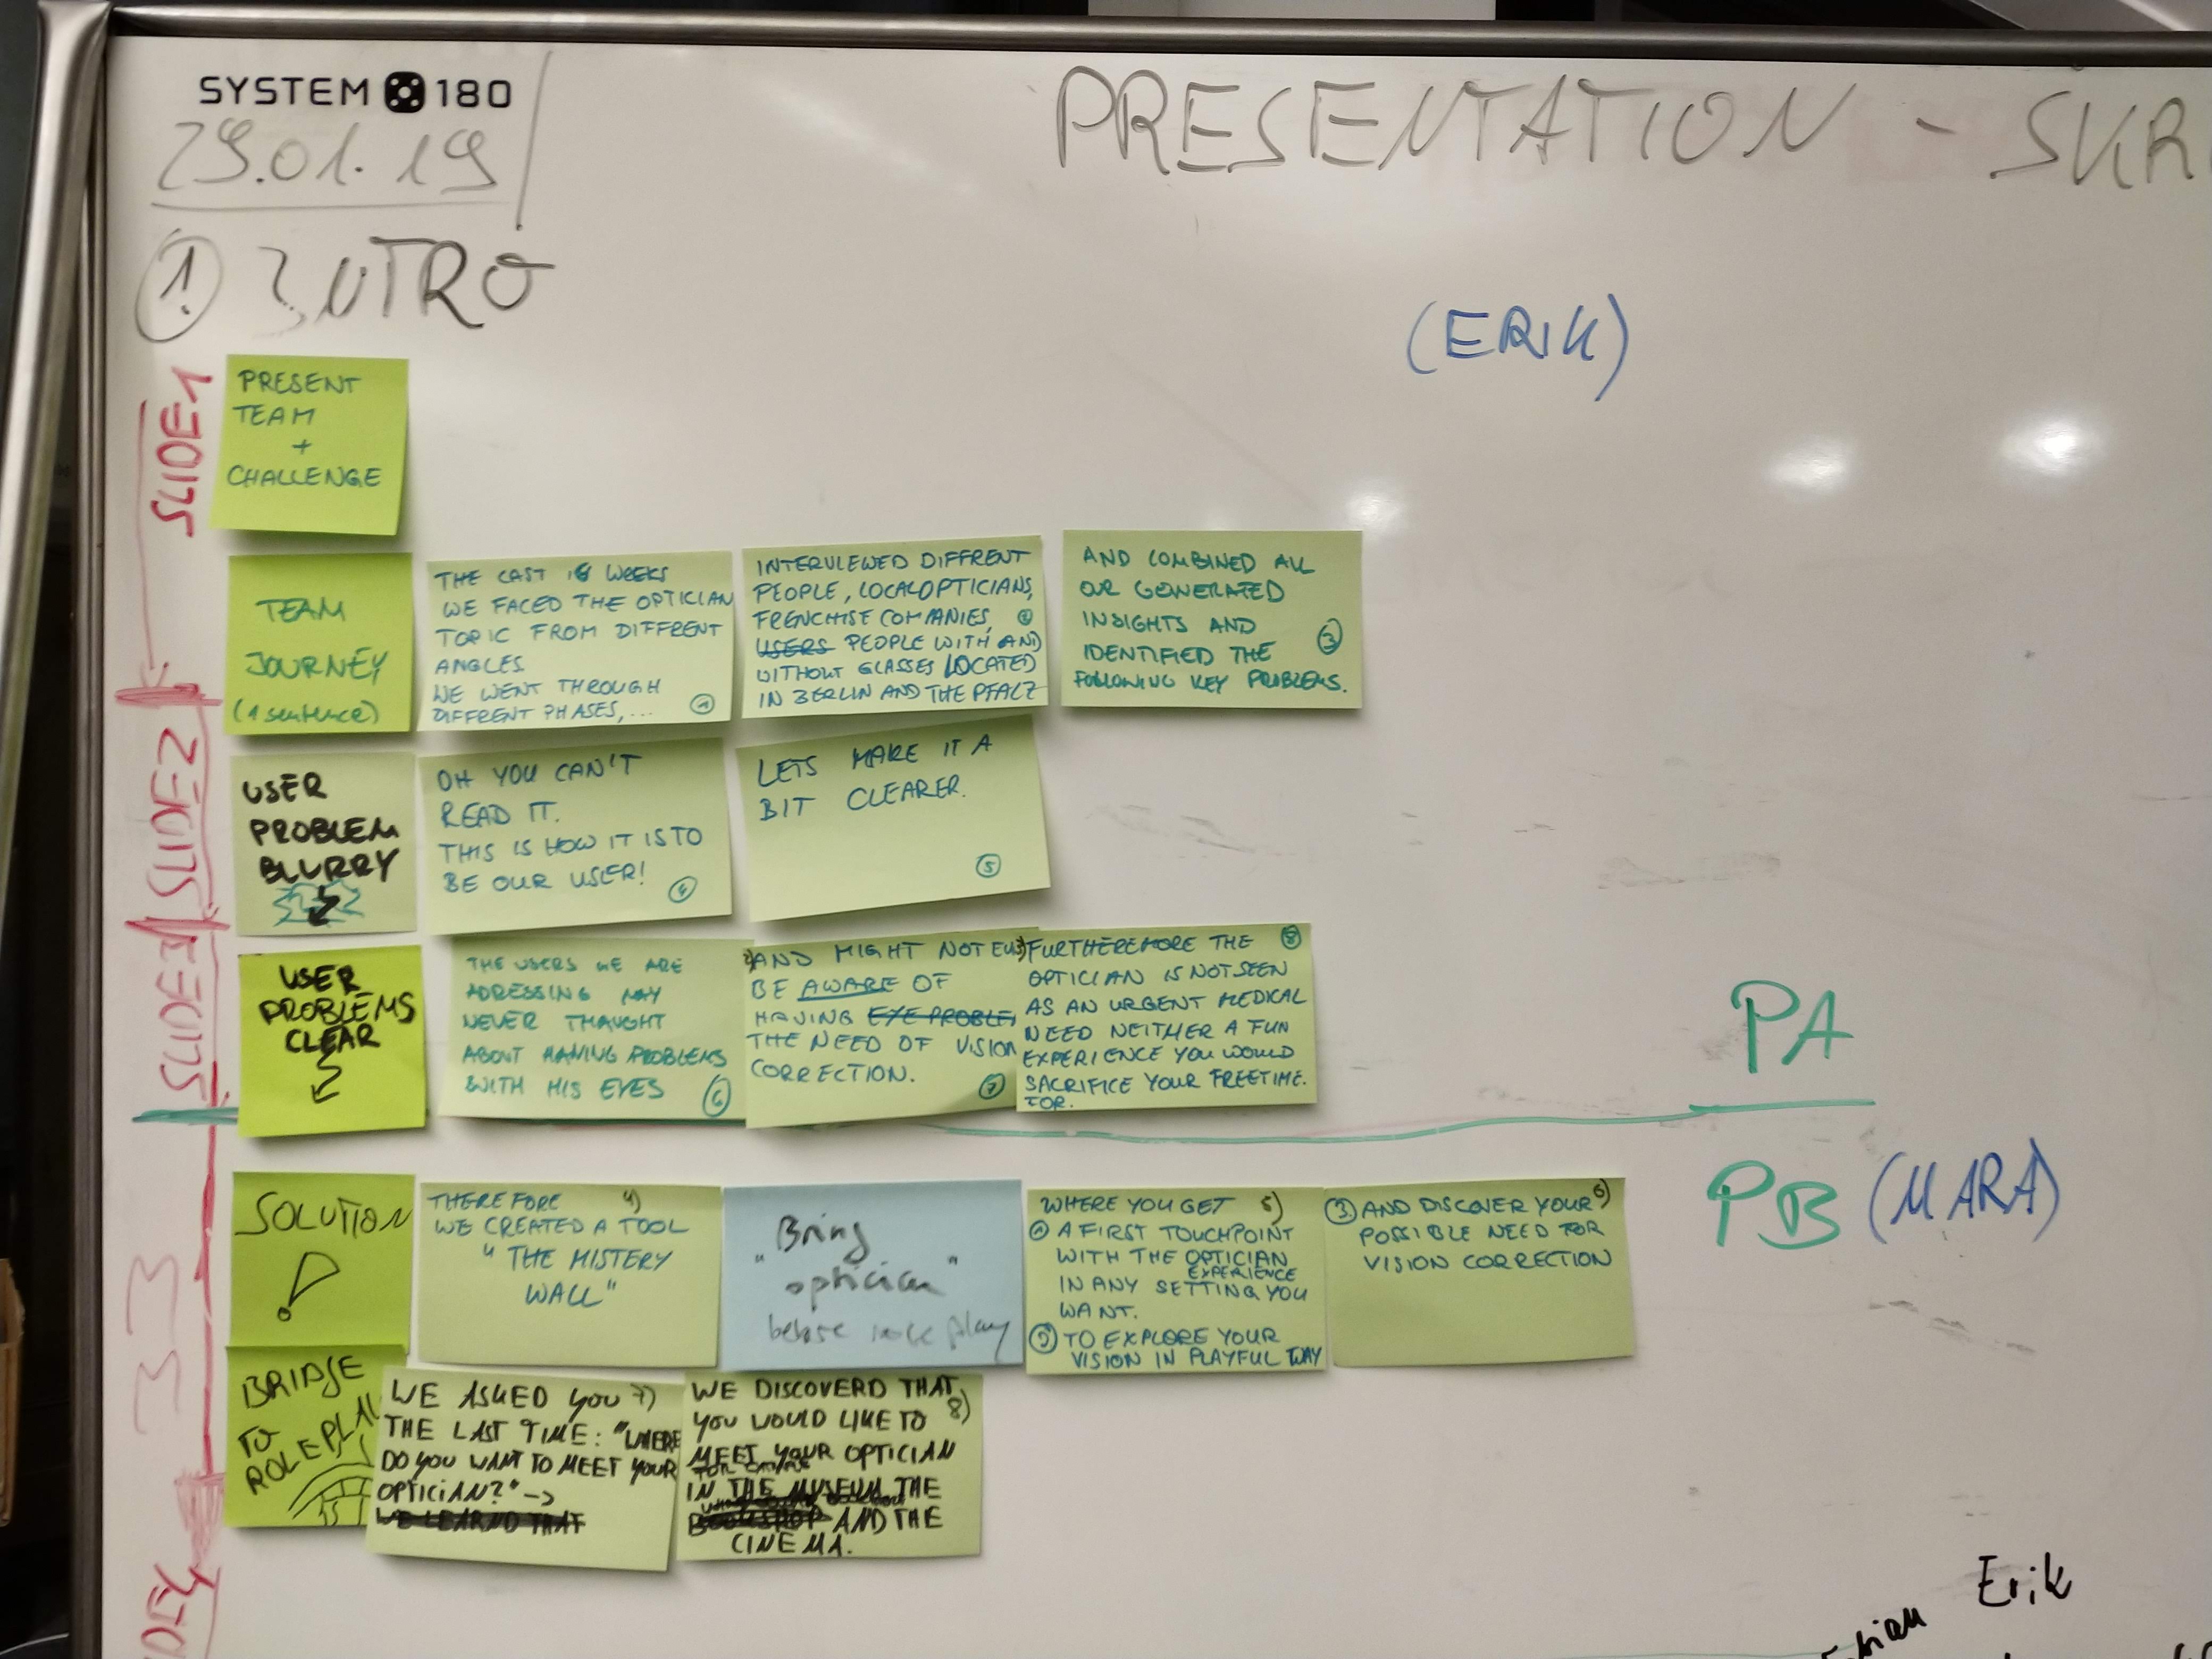 SYSTEM 180
29.01.19
PRESENTATION - SKR
1. INTRO
(ERIK)
SLIDE 1
PRESENT
TEAM
+
CHALLENGE
TEAM
JOURNEY
(1 sentence)
THE LAST 16 WEEKS
WE FACED THE OPTICIAN
TOPIC FROM DIFFRENT
ANGLES
WE WENT THROUGH
DIFFRENT PHASES,... 1
INTERVIEWED DIFFRENT
PEOPLE, LOCAL OPTICIANS,
FRENCHISE COMPANIES, 2
USERS PEOPLE WITH AND
WITHOUT GLASSES LOCATED
IN BERLIN AND THE PFALZ
AND COMBINED ALL
OUR GENERATED
INSIGHTS AND
IDENTIFIED THE 3
FOLLOWING KEY PROBLEMS.
SLIDE 2
USER
PROBLEM
BLURRY
OH YOU CAN'T
READ IT.
THIS IS HOW IT IS TO
BE OUR USER! 4
LETS MAKE IT A
BIT CLEARER.
5
SLIDE 3
USER
PROBLEMS
CLEAR
THE USERS WE ARE
ADRESSING MAY
NEVER THAUGHT
ABOUT HAVING PROBLEMS
WITH HIS EYES 6
2) AND MIGHT NOT EV
BE AWARE OF
HAVING EYE PROBLE
THE NEED OF VISION
CORRECTION. 7
3) FURTHEREMORE THE 8
OPTICIAN IS NOT SEEN
AS AN URGENT MEDICAL
NEED NEITHER A FUN
EXPERIENCE YOU WOULD
SACRIFICE YOUR FREETIME.
FOR.
PA
PB (MARA)
SOLUTION
!
THEREFORE 4)
WE CREATED A TOOL
"THE MISTERY
WALL"
"Bring
optician"
before role play
WHERE YOU GET 5)
1 A FIRST TOUCHPOINT
WITH THE OPTICIAN
EXPERIENCE
IN ANY SETTING YOU
WANT.
2 TO EXPLORE YOUR
VISION IN PLAYFUL WAY
3. AND DISCOVER YOUR 6)
POSSIBLE NEED FOR
VISION CORRECTION
BRIDGE
TO
ROLEPLAY
WE ASKED YOU 7)
THE LAST TIME: "WHERE
DO YOU WANT TO MEET YOUR
OPTICIAN?" ->
WE LEARND THAT
WE DISCOVERD THAT
YOU WOULD LIKE TO 8)
MEET YOUR OPTICIAN
IN THE MUSEUM THE
BOOKSHOP AND THE
CINEMA.
Erik